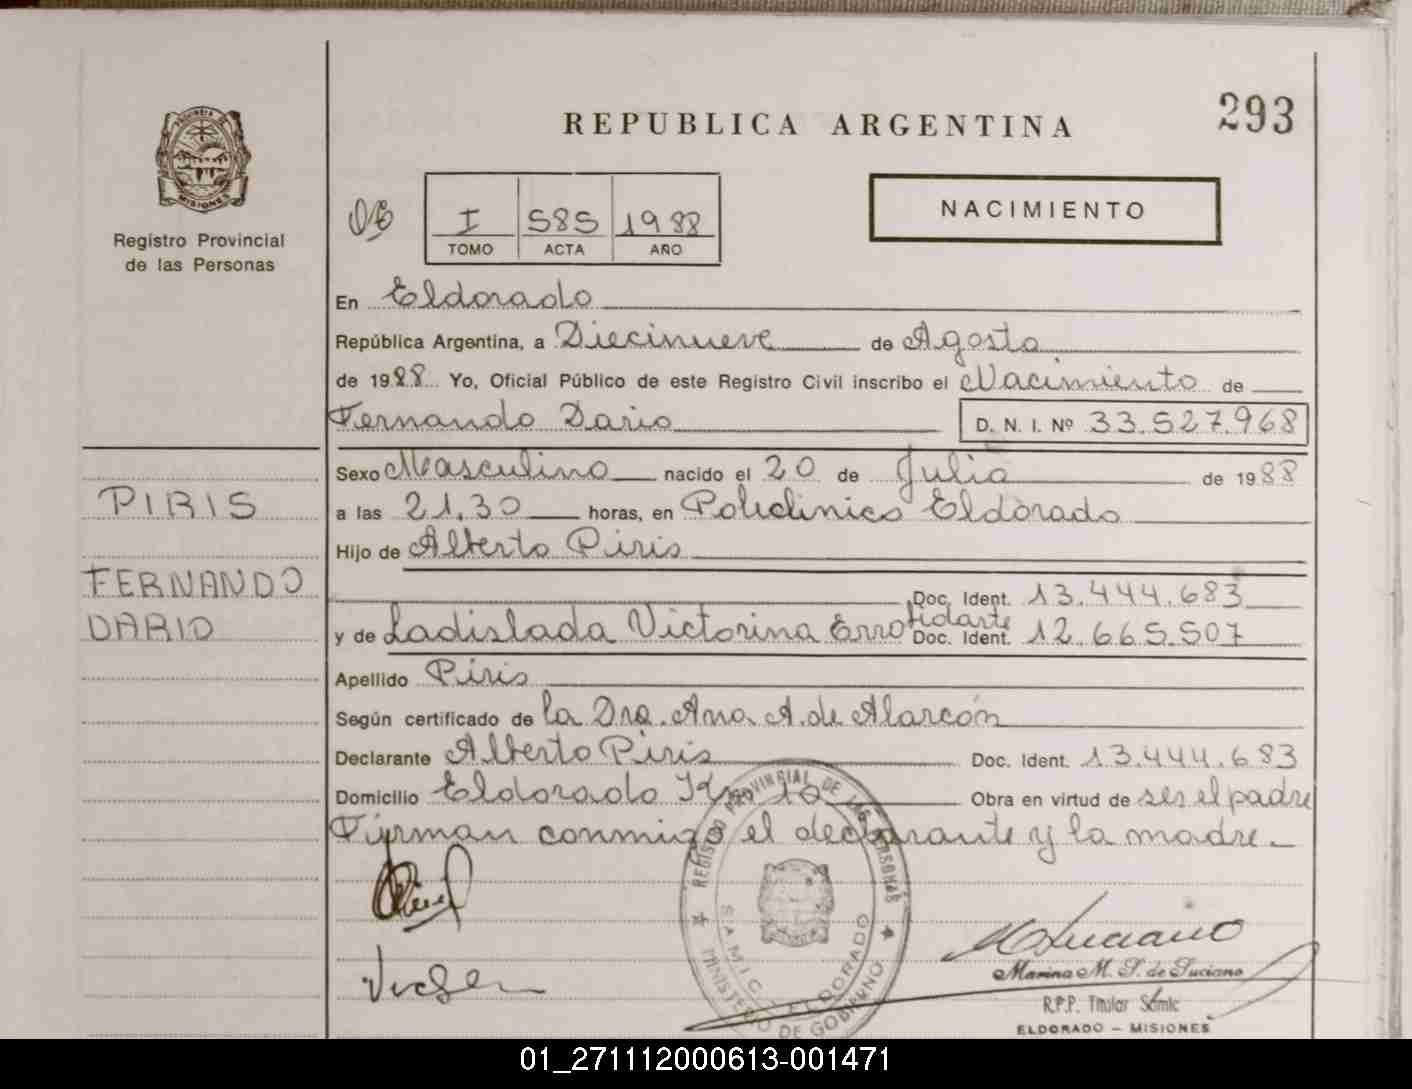 REPUBLICA ARGENTINA
293
PROVINCIA DE
MISIONES
Registro Provincial
de las Personas
I 585 1988
TOMO ACTA AÑO
NACIMIENTO
En Eldorado
República Argentina, a Diecinueve de Agosto
de 1988 Yo, Oficial Público de este Registro Civil inscribo el Nacimiento de
Fernando Dario D. N. I. Nº 33.527.968
Sexo Masculino nacido el 20 de Julio de 1988
PIRIS
a las 21,30 horas, en Policlinico Eldorado
Hijo de Alberto Piris
FERNANDO
DARIO
Doc. Ident. 13.444.683
y de Ladislada Victorina Errofidarte Doc. Ident. 12.665.507
Apellido Piris
Según certificado de la Dra. Ana A. de Alarcón
Declarante Alberto Piris Doc. Ident. 13.444.683
Domicilio Eldorado Km 10 Obra en virtud de ser el padre
Firman conmigo el declarante y la madre
REGISTRO PROVINCIAL DE LAS PERSONAS
S.A.M.I.C. ELDORADO
MINISTERIO DE GOBIERNO
Marina M. S. de Luciano
R.P.P. Titular Samic
ELDORADO - MISIONES
01_271112000613-001471